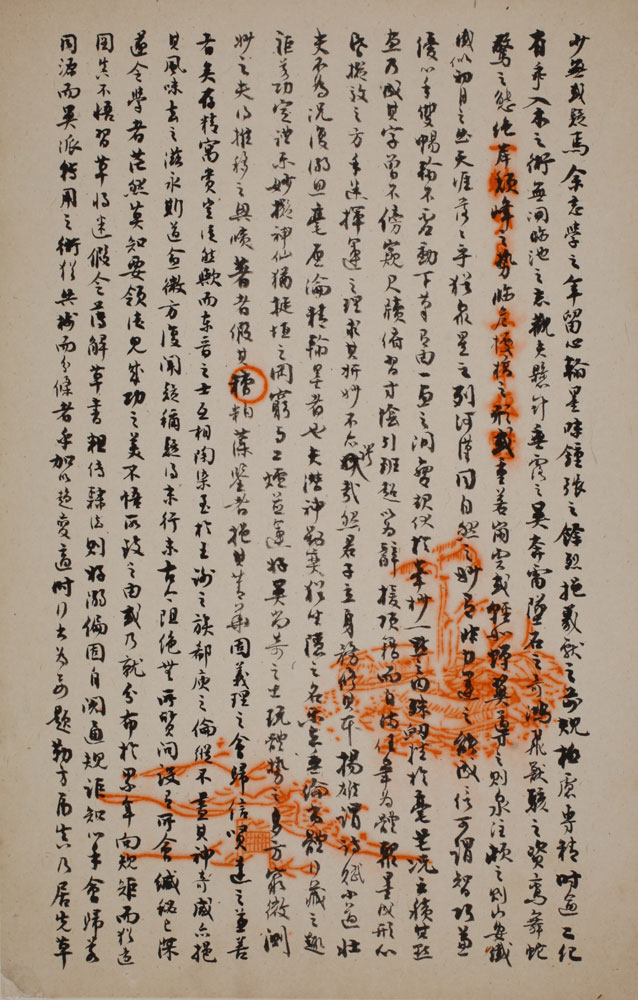 少無或疑焉余志學之年留心翰墨味鍾張之餘烈挹羲獻之前規極慮專精時逾二紀
有乖入木之術無間臨池之志觀夫懸針垂露之異奔雷墜石之奇鴻飛獸駭之資鸞舞蛇
驚之態絕岸頹峰之勢臨危據槁之形或重若崩雲或輕如蟬翼導之則泉注頓之則山安纖
似初月之出天涯落之乎猶眾星之列河漢同自然之妙有非力運之能成信可謂智巧兼
優心手雙暢翰不虛動下筆有由一畫之間變起伏於峯杪一點之內殊衄挫於毫芒況云積其點
畫乃成其字曾不傍窺尺牘俯習寸陰引班超以為辭援項籍而自滿任筆為體聚墨成形心
昏擬效之方手迷揮運之理求其妍妙不亦謬哉然君子立身務修其本揚雄謂詩賦小道壯
夫不為況復溺思毫釐淪精翰墨者也夫潛神對奕猶坐隱之名樂志垂綸尚體行藏之趣
詎若功宣禮樂妙擬神仙猶埏埴之罔窮與工爐並運好異尚奇之士玩體勢之多方窮微測
妙之夫得推移之奧賾著者假其糟粕藻鑒者挹其菁華固義理之會歸信賢達之兼善
者矣存精寓賞豈徒然歟而東晉之士互相陶染至於王謝之族郗庾之倫縱不盡其神奇咸亦挹
其風味去之滋永斯道愈微方復聞疑稱疑得末行末古今阻絕無所質問設有所會緘秘已深
遂令學者茫然莫知要領徒見成功之美不悟所致之由或乃就分布於累年向規矩而猶遠
圖真不悟習草將迷假令薄解草書粗傳隸法則好溺偏固自閡通規詎知心手會歸若
同源而異派轉用之術猶共樹而分條者乎加以趨變適時行書為要題勒方畐真乃居先草